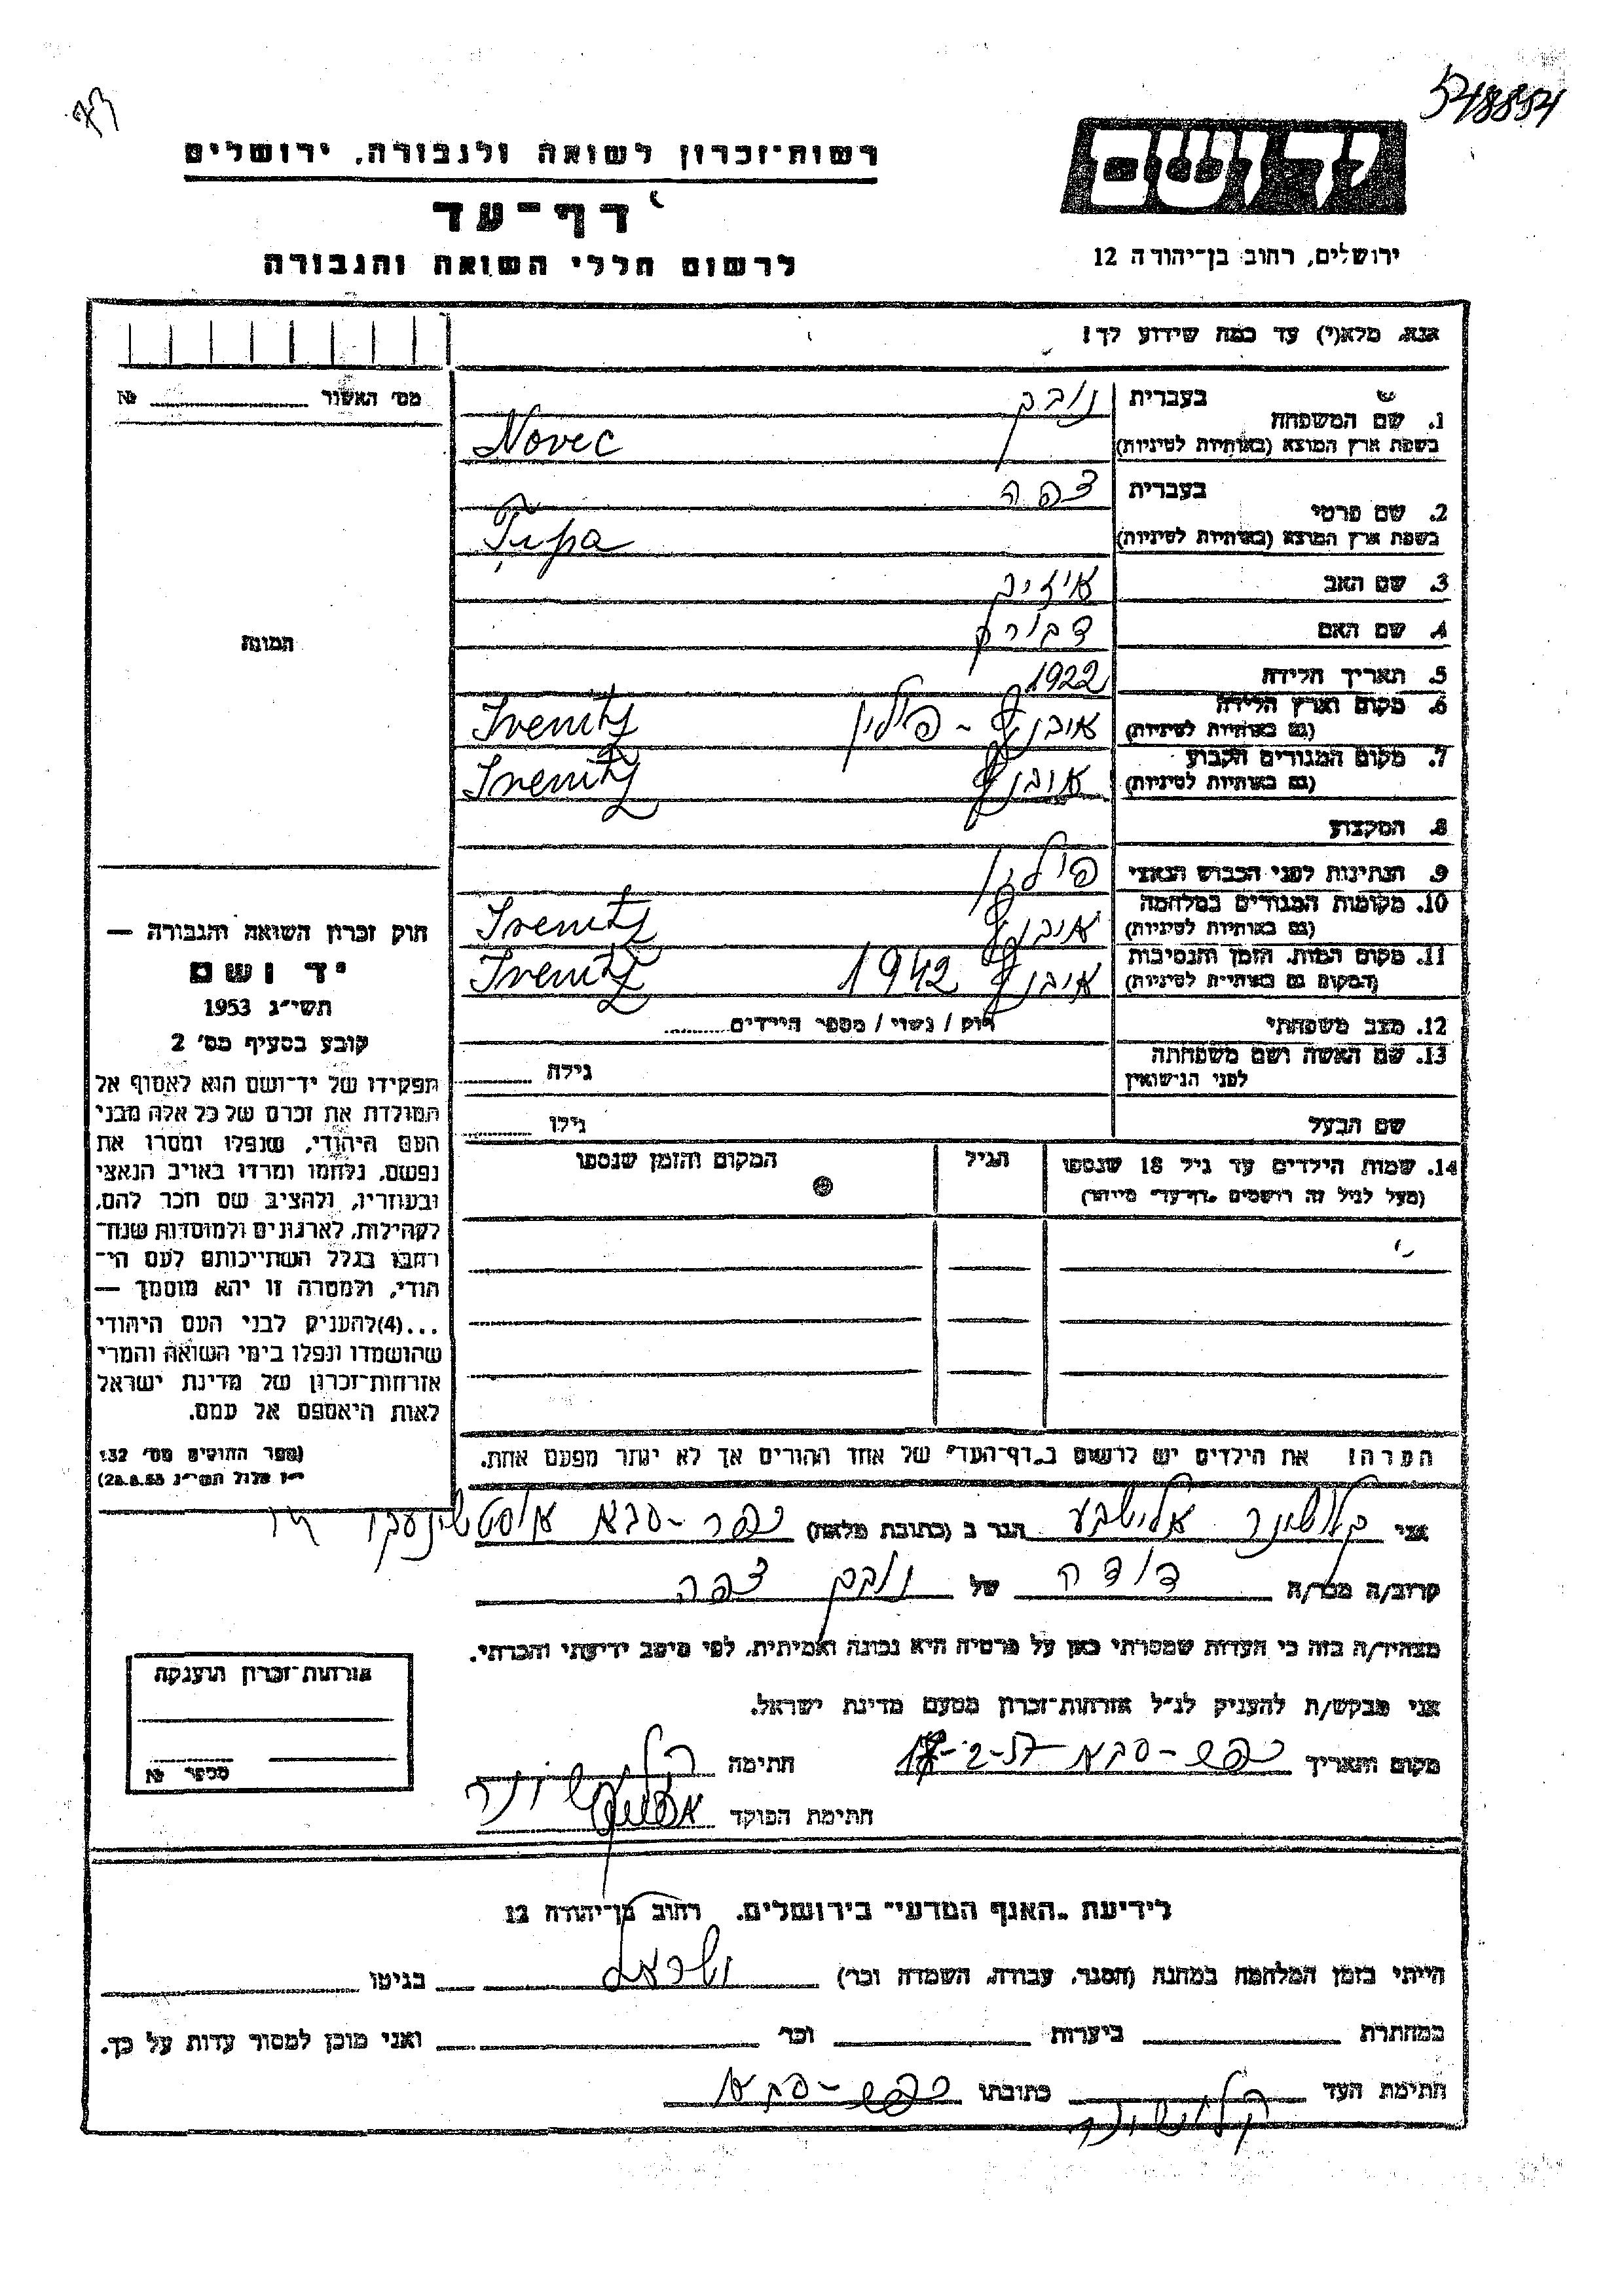 548884
רשות־זכרון לשואה ולגבורה, ירושלים
דף־עד
לרשום חללי השואה והגבורה
יד ושם
ירושלים, רחוב בן־יהודה 12
אנא, מלא(י) עד כמה שידוע לך!
מס' האשור № 
1. שם המשפחה
בעברית
נובק
בשפת ארץ המוצא (באותיות לטיניות)
Novec
2. שם פרטי
בעברית
צפה
בשפת ארץ המוצא (באותיות לטיניות)
3. שם האב
אייזיק
4. שם האם
דבורה
5. תאריך הלידה
1922
6. מקום וארץ הלידה
(גם באותיות לטיניות)
פולין
Ivenitz
7. מקום המגורים הקבוע
(גם באותיות לטיניות)
Ivenitz
8. המקצוע
9. הנתינות לפני הכבוש הנאצי
פולין
10. מקומות המגורים במלחמה
(גם באותיות לטיניות)
Ivenitz
11. מקום המות, הזמן והנסיבות
(המקום גם באותיות לטיניות)
1942 Ivenitz
12. מצב משפחתי
רוק / נשוי / מספר הילדים
13. שם האשה ושם משפחתה
לפני הנישואין
גילה
שם הבעל
גילו
14. שמות הילדים עד גיל 18 שנספו
(מעל לגיל זה רושמים „דף־עד" מיוחד)
הגיל
המקום והזמן שנספו
התמונה
חוק זכרון השואה והגבורה —
יד ושם
תשי"ג 1953
קובע בסעיף מס' 2
תפקידו של יד־ושם הוא לאסוף אל
המולדת את זכרם של כל אלה מבני
העם היהודי, שנפלו ומסרו את
נפשם, נלחמו ומרדו באויב הנאצי
ובעוזריו, ולהציב שם וזכר להם,
לקהילות, לארגונים ולמוסדות שנח־
רבו בגלל השתייכותם לעם הי־
הודי, ולמטרה זו יהא מוסמך —
...(4)להעניק לבני העם היהודי
שהושמדו ונפלו בימי השואה והמרי
אזרחות־זכרון של מדינת ישראל
לאות היאספם אל עמם.
(ספר החוקים מס' 132
י"ז אלול תשי"ג 28.8.53)
הערה! את הילדים יש לרשום ב„דף־העד" של אחד ההורים אך לא יותר מפעם אחת.
אני קלושינר אלישבע הגר ב (כתובת מלאה) כפר-סבא
קרוב/ה מכר/ה דודה של נובק צפה
מצהיר/ה בזה כי העדות שמסרתי כאן על פרטיה היא נכונה ואמיתית, לפי מיטב ידיעתי והכרתי.
אני מבקש/ת להעניק לנ"ל אזרחות־זכרון מטעם מדינת ישראל.
מקום ותאריך כפר-סבא 17-2-57 חתימה
חתימת הפוקד
אזרחות־זכרון הוענקה
מספר №
לידיעת „האגף המדעי" בירושלים. רחוב בן־יהודה 12
הייתי בזמן המלחמה במחנה (הסגר, עבודה, השמדה וכו') בגיטו
במחתרת ביערות וכו' ואני מוכן למסור עדות על כך.
חתימת העד כתובתו כפר-סבא